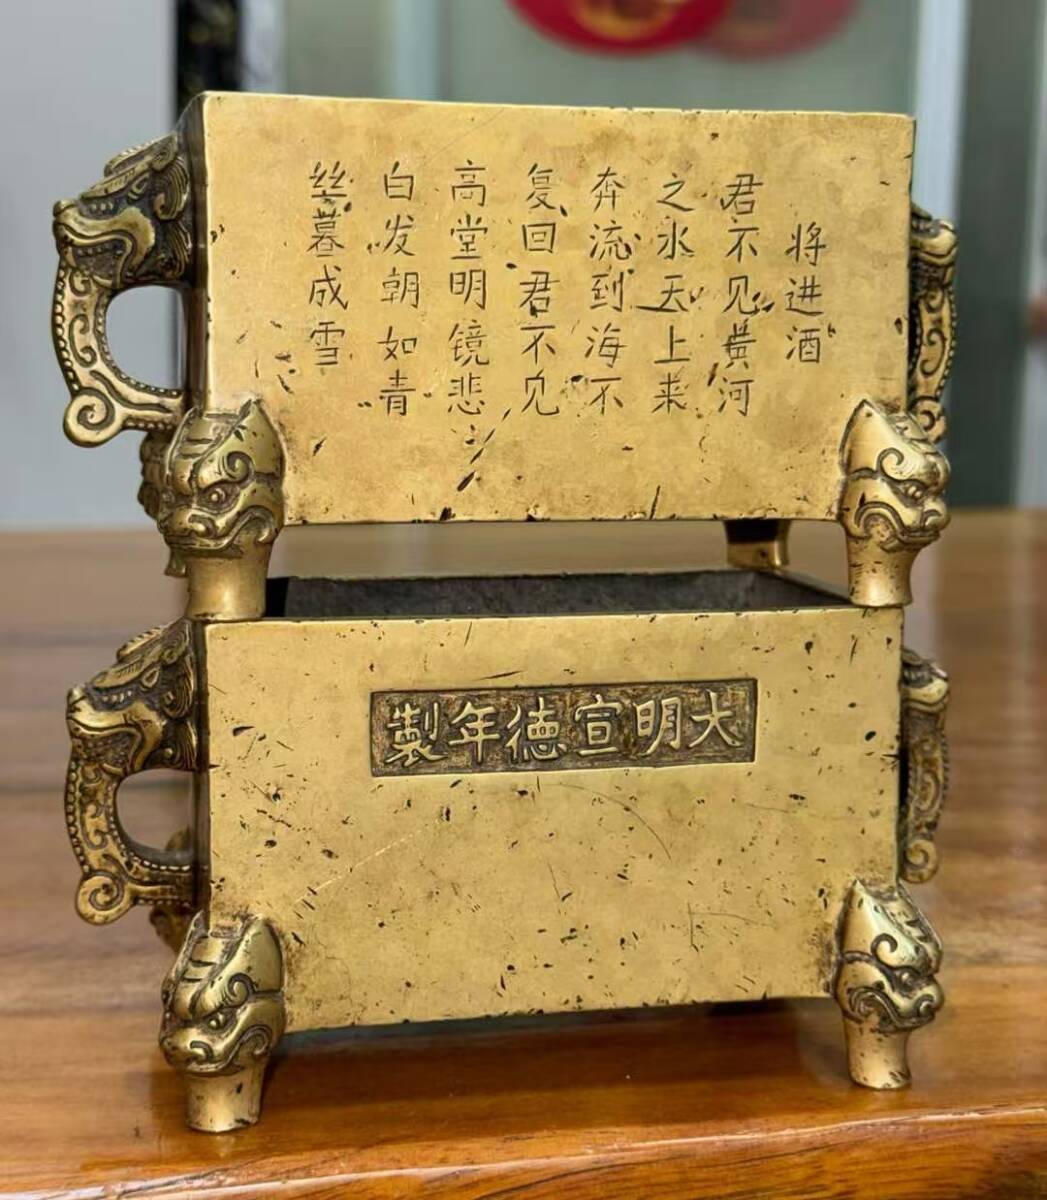 将进酒
君不见黄河
之水天上来
奔流到海不
复回君不见
高堂明镜悲
白发朝如青
丝暮成雪
大明宣德年製